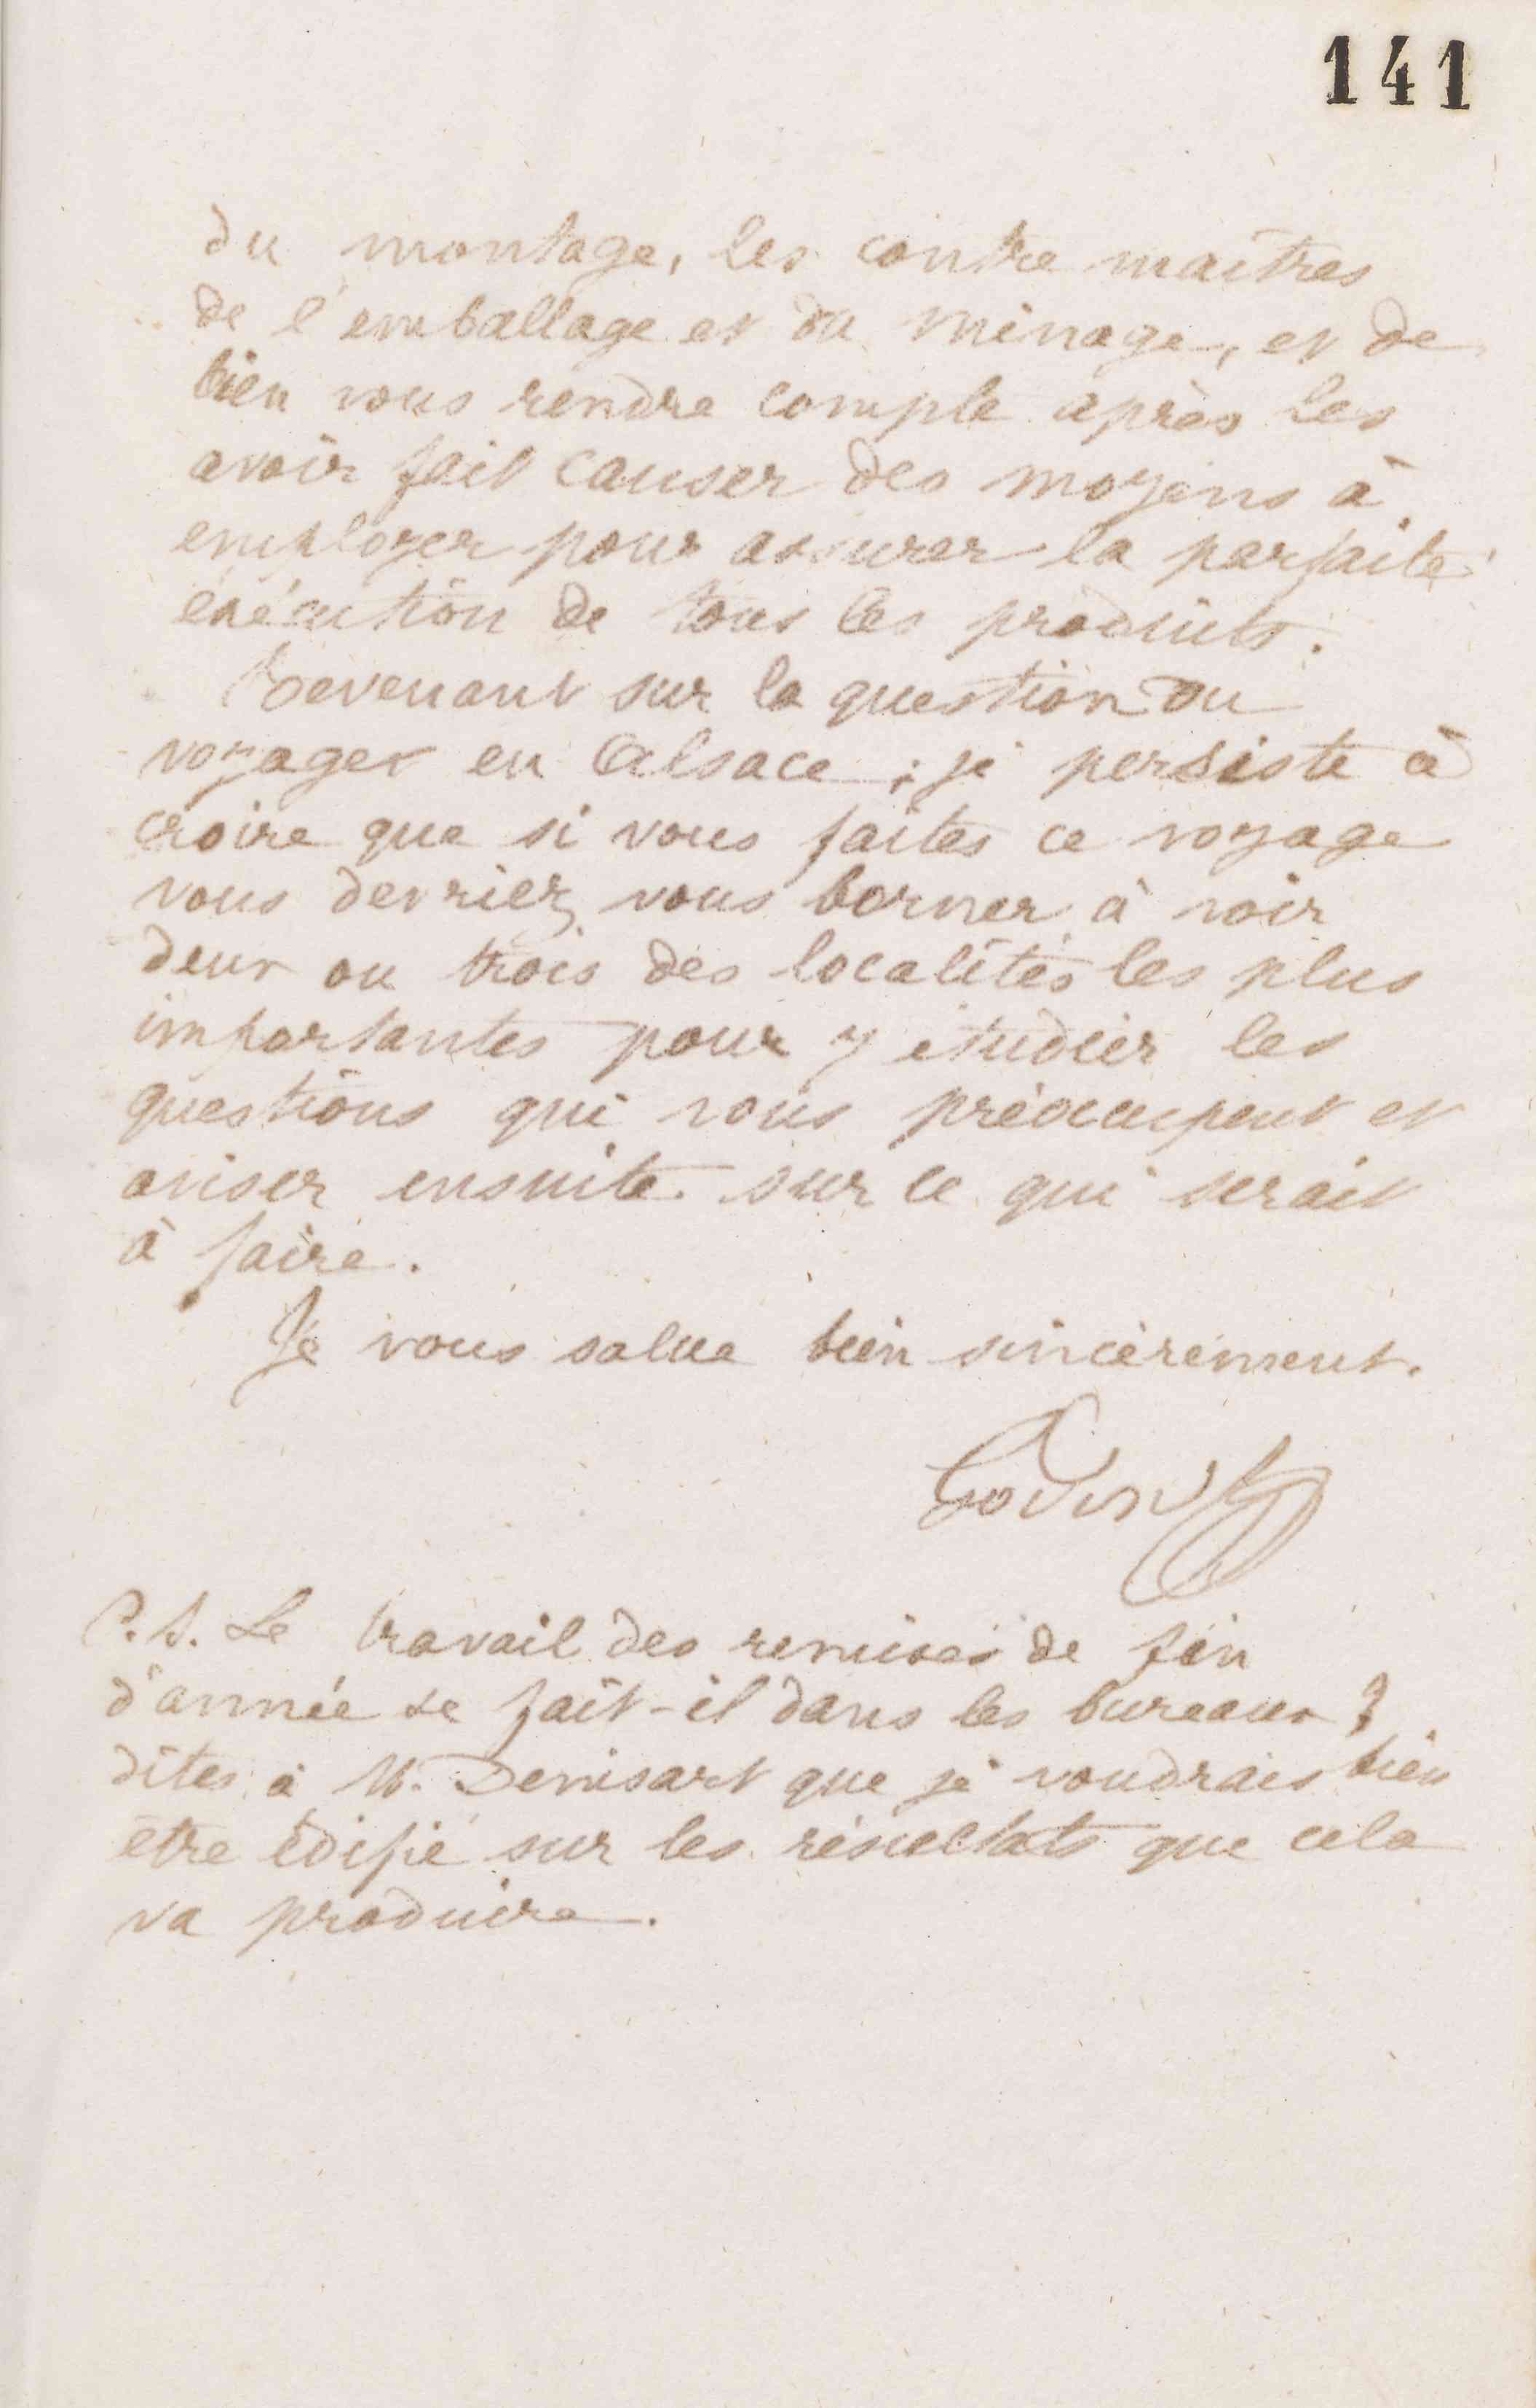 141
du montage, les contre maîtres
de l'emballage et du ménage, et de
bien vous rendre compte après les
avoir fait causer des moyens à
employer pour assurer la parfaite
exécution de tous les produits.
Revenant sur la question du
voyager en Alsace ; je persiste à
croire que si vous faites ce voyage
vous devriez vous borner à voir
deux ou trois des localités les plus
importantes pour y étudier les
questions qui vous préoccupent et
aviser ensuite sur ce qui serait
à faire.
Je vous salue bien sincèrement.
Godin
P.S. Le travail des remises de fin
d'année se fait-il dans les bureaux ?
dites à M. Denisart que je voudrais bien
être édifié sur les résultats que cela
va produire.